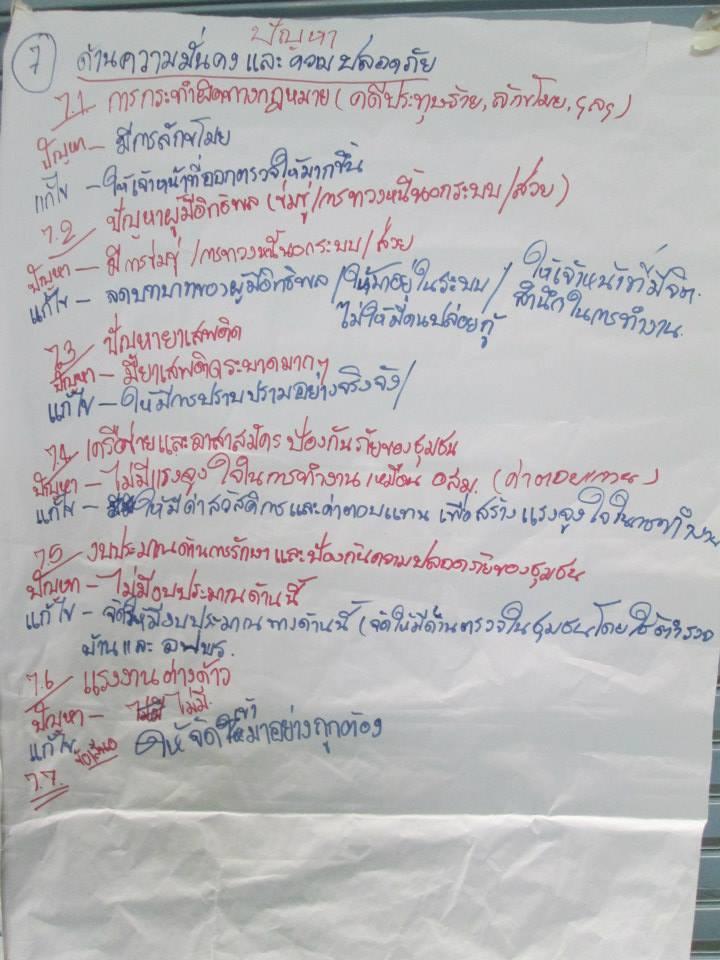 ปัญหา
7 ด้านความมั่นคงและความปลอดภัย
7.1 การกระทำผิดทางกฎหมาย (คดีประทุษร้าย, ลักขโมย, ฯลฯ)
ปัญหา - มีการลักขโมย
แก้ไข - ให้เจ้าหน้าที่ออกตรวจให้มากขึ้น
7.2 ปัญหาผู้มีอิทธิพล (ข่มขู่/การทวงหนี้นอกระบบ/ส่วย)
ปัญหา - มีการข่มขู่ /การทวงหนี้นอกระบบ/ส่วย
แก้ไข - ลดบทบาทของผู้มีอิทธิพล /ให้มาอยู่ในระบบ/ ให้เจ้าหน้าที่มีจิต
ไม่ให้มีคนปล่อยกู้ สำนึกในการทำงาน
7.3 ปัญหายาเสพติด
ปัญหา - มียาเสพติดระบาดมากๆ
แก้ไข - ให้มีการปราบปรามอย่างจริงจัง/
7.4 เครือข่ายและอาสาสมัครป้องกันภัยของชุมชน
ปัญหา - ไม่มีแรงจูงใจในการทำงานเหมือน อสม. (ค่าตอบแทน)
แก้ไข - ให้มีค่าสวัสดิการและค่าตอบแทน เพื่อสร้างแรงจูงใจในการทำงาน
7.5 งบประมาณด้านการรักษาและป้องกันความปลอดภัยของชุมชน
ปัญหา - ไม่มีงบประมาณด้านนี้
แก้ไข - จัดให้มีงบประมาณทางด้านนี้ (จัดให้มีด่านตรวจในชุมชนโดยใช้ตำรวจ
บ้านและ อปพร.
7.6 แรงงานต่างด้าว
ปัญหา - ไม่มี
แก้ไข ให้จัดให้เข้ามาอย่างถูกต้อง
7.7 ข้อเสนอ